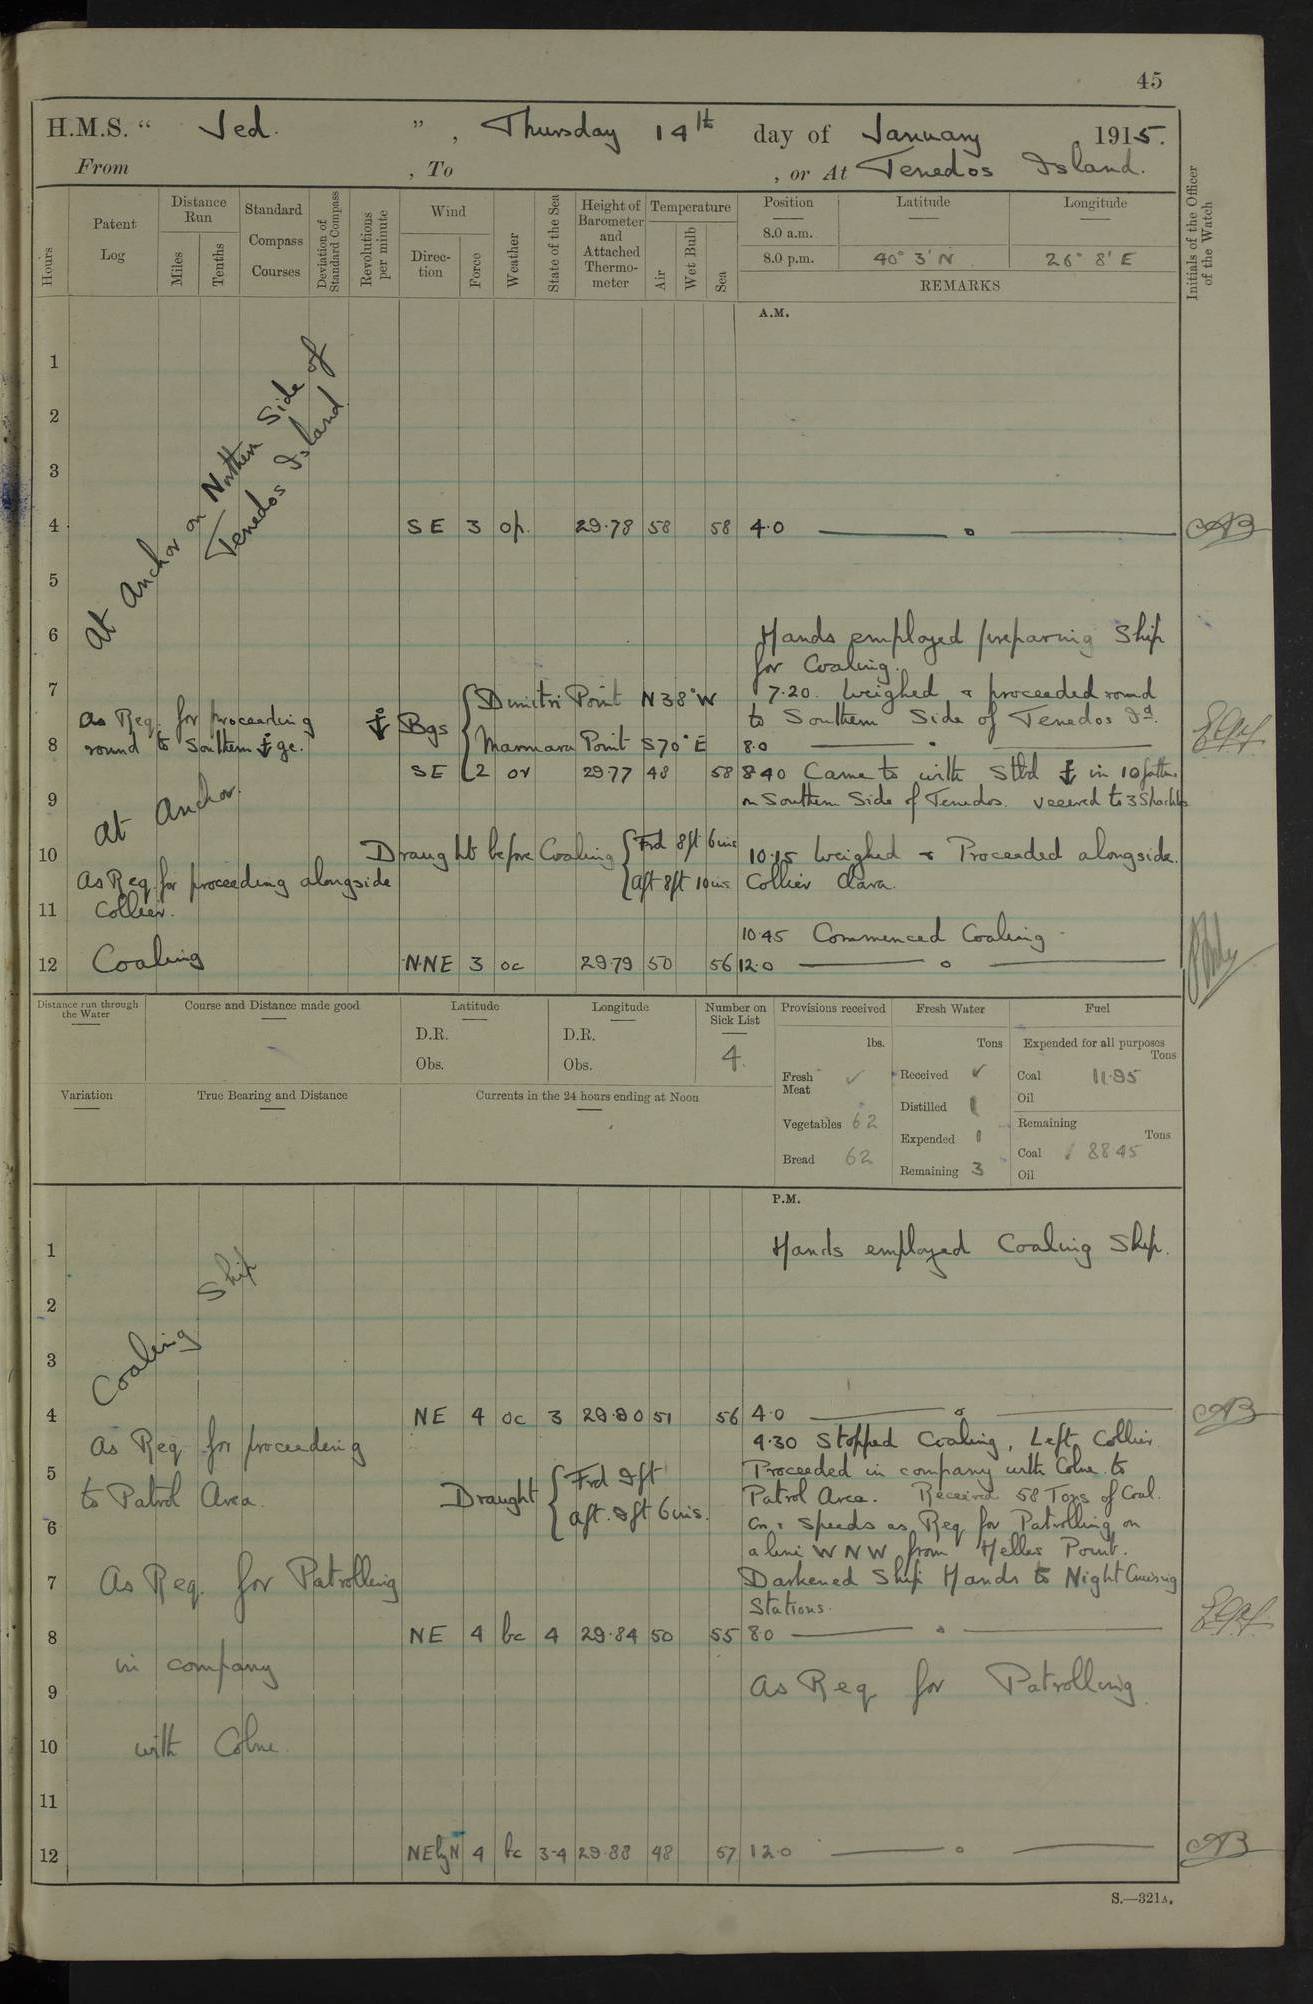 45
H.M.S. " Jed. ", Thursday 14th day of January, 1915.
From , To , or At Tenedos Island.
Hours
Patent Log
Distance Run
Miles
Tenths
Standard Compass Courses
Deviation of Standard Compass
Revolutions per minute
Wind
Direction
Force
Weather
State of the Sea
Height of Barometer and Attached Thermometer
Temperature
Air
Wet Bulb
Sea
Position
8.0 a.m.
8.0 p.m.
Latitude
40° 3' N
Longitude
26° 8' E
REMARKS
Initials of the Officer of the Watch
A.M.
1
2
3
At Anchor on Northern Side of
Tenedos Island
4 SE 3 op. 29.78 58 58 4.0 AB
5
6 Hands employed preparing Ship
for Coaling.
7 Dimitri Point N38°W 7.20. Weighed & proceeded round
As Req. for proceeding ⚓ Bgs to Southern Side of Tenedos Id.
8 round to Southern ⚓ge. Marmara Point S70°E 8.0
SE 2 or 29.77 48 58 8.40 Came to with Stbd ⚓ in 10 fathms
9 At Anchor. on Southern Side of Tenedos. veered to 3 Shackles
Draught before Coaling { Frd 8ft 6ins
10 10.15 Weighed & Proceeded alongside
As Req. for proceeding alongside Aft 8ft 10ins Collier Clara.
11 Collier.
10.45 Commenced Coaling
12 Coaling N.NE 3 oc 29.79 50 56 12.0
Distance run through the Water
Course and Distance made good
Latitude
D.R.
Obs.
Longitude
D.R.
Obs.
Number on Sick List
4
Provisions received
lbs.
Fresh Meat ✓
Vegetables 62
Bread 62
Fresh Water
Tons
Received ✓
Distilled 1
Expended 1
Remaining 3
Fuel
Expended for all purposes
Tons
Coal 11.95
Oil
Remaining
Tons
Coal 88.45
Oil
Variation
True Bearing and Distance
Currents in the 24 hours ending at Noon
P.M.
1 Hands employed Coaling Ship.
2
3
Coaling Ship
4 NE 4 oc 3 29.80 51 56 4.0 AB
As Req for proceeding 4.30 Stopped Coaling, Left Collier
5 Draught { Frd 9ft Proceeded in company with Colne to
to Patrol Area. Patrol Area. Received 58 Tons of Coal.
6 Aft. 9ft 6ins. Co. & Speeds as Req for Patrolling on
a line WNW from Helles Point.
7 As Req. for Patrolling Darkened Ship Hands to Night Cruising
Stations.
8 NE 4 bc 4 29.84 50 55 8.0
in company
9 As Req for Patrolling
10 with Colne
11
12 NEbyN 4 bc 3-4 29.88 48 57 12.0 AB
S.—321A.